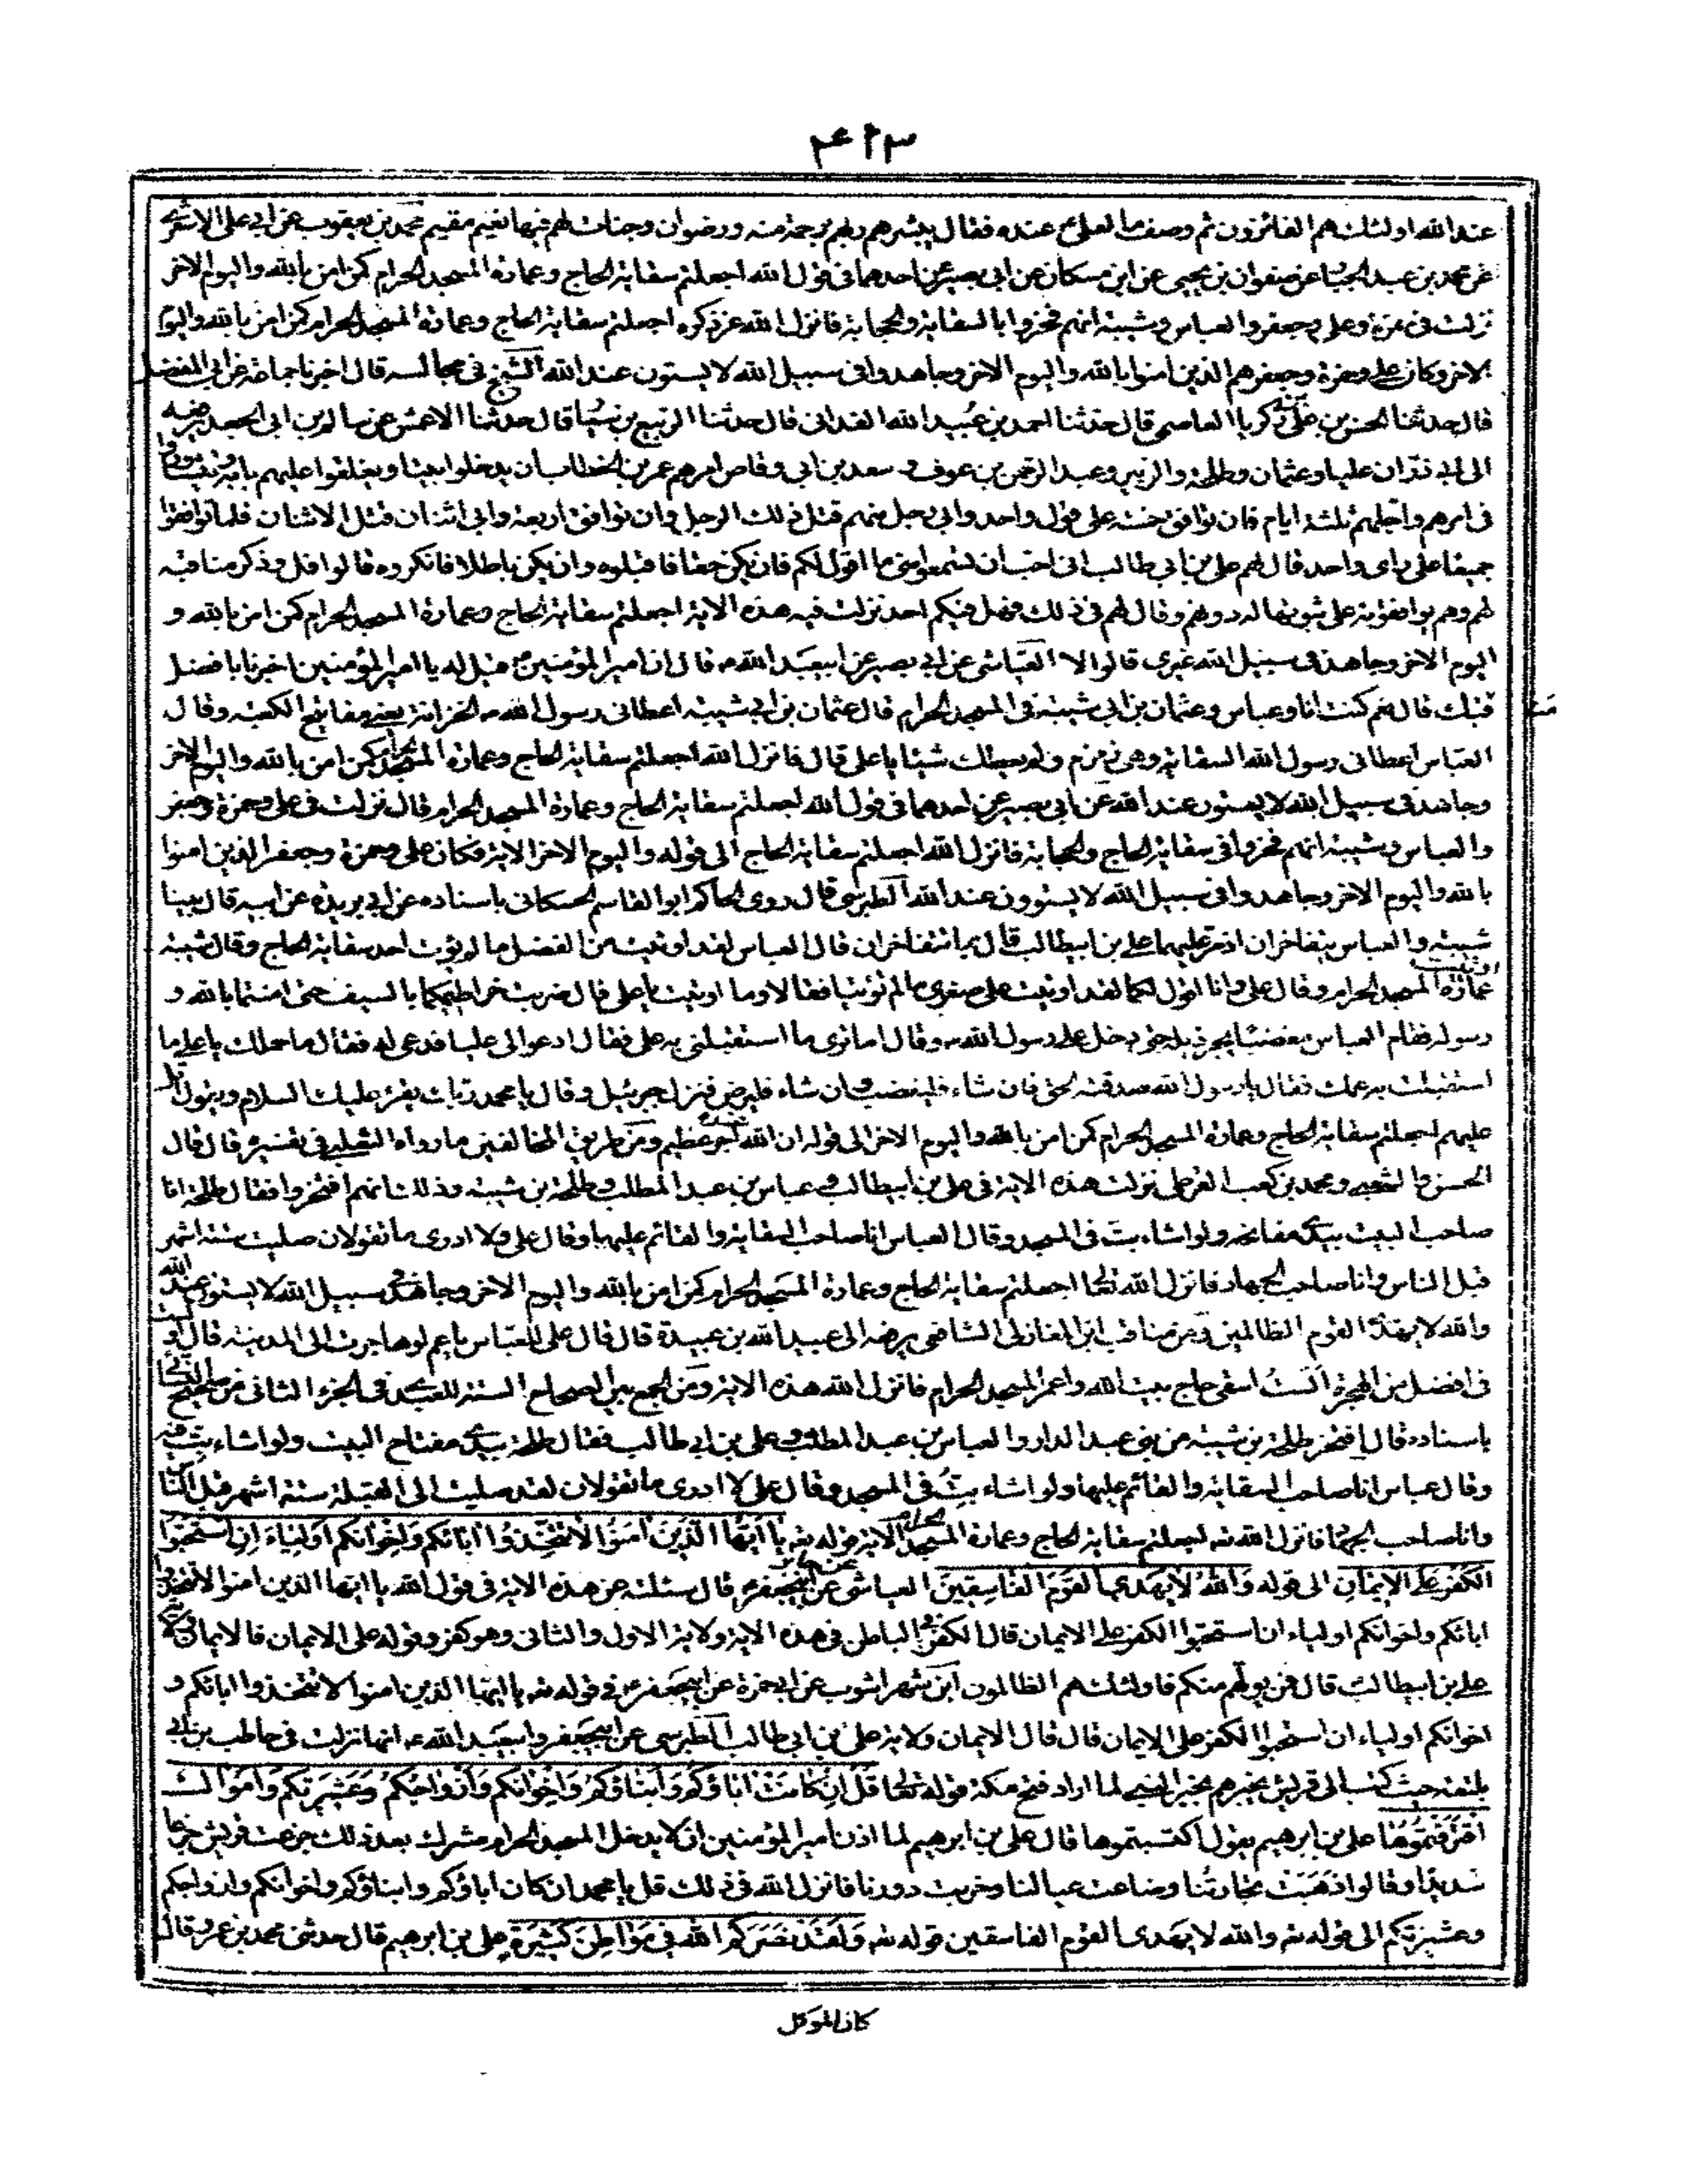 ٤١٣
عند الله اولئك هم الفائزون ثم وصف ما لعلى ع عنده فقال يبشرهم ربهم برحمة منه ورضوان وجنات لهم فيها نعيم مقيم محمد بن يعقوب عن ابى على الاشعرى
عن محمد بن عبد الجبار عن صفوان بن يحيى عن ابن مسكان عن ابى بصير عن احدهما فى قول الله اجعلتم سقاية الحاج وعمارة المسجد الحرام كمن امن بالله واليوم الاخر
نزلت فى حمزة وعلى وجعفر والعباس وشيبة انهم فخروا بالسقاية والحجابة فانزل الله عز ذكره اجعلتم سقاية الحاج وعمارة المسجد الحرام كمن امن بالله واليوم
الاخر وكان على وحمزة وجعفر هم الذين امنوا بالله واليوم الاخر وجاهدوا فى سبيل الله لا يستون عند الله الشيخ فى مجالسه قال اخبرنا جماعة عن ابى المفضل
قال حدثنا الحسن بن على بن زكريا العاصمى قال حدثنا احمد بن عبيد الله الغدانى قال حدثنا الربيع بن سيار قال حدثنا الاعمش عن سالم بن ابى الجعد يرفعه
الى ابى ذر ان عليا وعثمان وطلحة والزبير وعبد الرحمن بن عوف و سعد بن ابى وقاص امرهم عمر بن الخطاب ان يدخلوا بيتا ويغلقوا عليهم بابه ويتشاوروا
فى امرهم واجلهم ثلثة ايام فان توافق خمسة على قول واحد وابى رجل منهم قتل ذلك الرجل وان توافق اربعة وابى اثنان قتل الاثنان فلما توافقوا
جميعا على راى واحد قال لهم على بن ابى طالب انى احب ان تسمعوا منى ما اقول لكم فان يكن حقا فاقبلوه وان يكن باطلا فانكروه قالوا قل وذكر مناقبه
لهم وهم يوافقونه على ثبوتها له دونهم وقال لهم فى ذلك فهل فيكم احد نزلت فيه هذه الاية اجعلتم سقاية الحاج وعمارة المسجد الحرام كمن امن بالله و
اليوم الاخر وجاهد فى سبيل الله غيرى قالوا لا العياشى عن ابى بصير عن ابيعبد الله ع قال ان امير المؤمنين ع قيل له يا امير المؤمنين اخبرنا بافضل
مناقبك قال نعم كنت انا وعباس وعثمان بن ابى شيبة فى المسجد الحرام قال عثمان بن ابى شيبة اعطانى رسول الله ص الخزانة يعنى مفاتيح الكعبة وقال
العباس اعطانى رسول الله السقاية وهى زمزم ولم يعطك شيئا يا على قال فانزل الله اجعلتم سقاية الحاج وعمارة المسجد الحرام كمن امن بالله واليوم الاخر
وجاهد فى سبيل الله لا يستون عند الله عن ابى بصير عن احدهما فى قول الله اجعلتم سقاية الحاج وعمارة المسجد الحرام قال نزلت فى على وحمزة وجعفر
والعباس وشيبة انهم فخروا فى سقاية الحاج والحجابة فانزل الله اجعلتم سقاية الحاج الى قوله واليوم الاخر الاية فكان على وحمزة وجعفر الذين امنوا
بالله واليوم الاخر وجاهدوا فى سبيل الله لا يستوون عند الله الطبرسى قال روى الحاكم ابو القاسم الحسكانى باسناده عن ابى بريدة عن ابيه قال بينا
شيبة والعباس يتفاخران اذ مر عليهما على بن ابيطالب قال بما تتفاخران قال العباس لقد اوتيت من الفضل ما لم يؤت احد سقاية الحاج وقال شيبة
اوتيت عمارة المسجد الحرام وقال على وانا اقول لكما لقد اوتيت على صغرى ما لم تؤتيا فقالا وما اوتيت يا على قال ضربت خراطيمكما بالسيف حتى امنتما بالله و
رسوله فقام العباس مغضبا يجر ذيله حتى دخل على رسول الله ص وقال اما ترى ما استقبلنى به على فقال ادعوا لى عليا فدعى له فقال ما حملك يا على ما
استقبلت به عمك فقال يا رسول الله صدقته الحق فان شاء فليغضب وان شاء فليرض فنزل جبرئيل وقال يا محمد ربك يقرء عليك السلام ويقول اتل
عليهم اجعلتم سقاية الحاج وعمارة المسجد الحرام كمن امن بالله واليوم الاخر الى قوله ان الله عنده اجر عظيم ومن طريق المخالفين ما رواه الثعلبى فى تفسيره قال قال
الحسن والشعبى ومحمد بن كعب القرظى نزلت هذه الاية فى على بن ابيطالب وعباس بن عبد المطلب وطلحة بن شيبة وذلك انهم افتخروا فقال طلحة انا
صاحب البيت بيدى مفاتحه ولو اشاء بت فى المسجد وقال العباس انا صاحب السقاية والقائم عليها وقال على ولا ادرى ما تقولان صليت ستة اشهر
قبل الناس وانا صاحب الجهاد فانزل الله تعالى اجعلتم سقاية الحاج وعمارة المسجد الحرام كمن امن بالله واليوم الاخر وجاهد فى سبيل الله لا يستون عند الله
والله لا يهدى القوم الظالمين ومن مناقب ابن المغازلى الشافعى يرفعه الى عبيد الله بن عبيدة قال قال على للعباس يا عم لو هاجرت الى المدينة قال او لست
فى افضل من الهجرة الست اسقى حاج بيت الله واعمر المسجد الحرام فانزل الله هذه الاية ومن الجمع بين الصحاح الستة للعبدى فى الجزء الثانى من صحيح النسائى
باسناده قال افتخر طلحة بن شيبة من بنى عبد الدار والعباس بن عبد المطلب وعلى بن ابى طالب فقال طلحة بيدى مفتاح البيت ولو اشاء بت فيه
وقال عباس انا صاحب السقاية والقائم عليها ولو اشاء بت فى المسجد وقال على لا ادرى ما تقولان لقد صليت الى القبلة ستة اشهر قبل الناس
وانا صاحب الجهاد فانزل الله اجعلتم سقاية الحاج وعمارة المسجد الحرام الاية قوله تعالى يَا أَيُّهَا الَّذِينَ آمَنُوا لَا تَتَّخِذُوا آبَائَكُمْ وَإِخْوَانَكُمْ أَوْلِيَاءَ إِنِ اسْتَحَبُّوا
الْكُفْرَ عَلَى الْإِيمَانِ الى قوله وَاللَّهُ لَا يَهْدِى الْقَوْمَ الْفَاسِقِينَ العياشى عن جابر عن ابيجعفر ع قال سئلته عن هذه الاية فى قول الله يا ايها الذين امنوا لا تتخذوا
ابائكم واخوانكم اولياء ان استحبوا الكفر على الايمان قال الكفر فى الباطن فى هذه الاية ولاية الاول والثانى وهو كفر وقوله على الايمان فالايمان ولاية
على بن ابيطالب قال فمن يولهم منكم فاولئك هم الظالمون ابن شهراشوب عن ابى حمزة عن ابيجعفر ع فى قوله تعالى يا ايها الذين امنوا لا تتخذوا ابائكم و
اخوانكم اولياء ان استحبوا الكفر على الايمان قال قال الايمان ولاية على بن ابى طالب الطبرسى عن ابيجعفر وابيعبد الله ع انها نزلت فى حاطب بن ابى
بلتعة حيث كتب الى قريش يخبرهم بخبر النبى لما اراد فتح مكة قوله تعالى قُلْ إِنْ كَانَتْ آبَاؤُكُمْ وَأَبْنَاؤُكُمْ وَإِخْوَانُكُمْ وَأَزْوَاجُكُمْ وَعَشِيرَتُكُمْ وَأَمْوَالٌ
اقْتَرَفْتُمُوهَا على بن ابرهيم يقول اكتسبتموها قال على بن ابرهيم لما اذن امير المؤمنين ان لا يدخل المسجد الحرام مشرك بعد ذلك جزعت قريش جزعا
شديدا وقالوا ذهبت تجارتنا وضاعت عيالنا وخربت دورنا فانزل الله فى ذلك قل يا محمد ان كان اباؤكم وابناؤكم واخوانكم وازواجكم
وعشيرتكم الى قوله تعالى والله لا يهدى القوم الفاسقين قوله تعالى وَلَقَدْ نَصَرَكُمُ اللَّهُ فِى مَوَاطِنَ كَثِيرَةٍ على بن ابرهيم قال حدثنى محمد بن عمرو قال
كان المتوكل